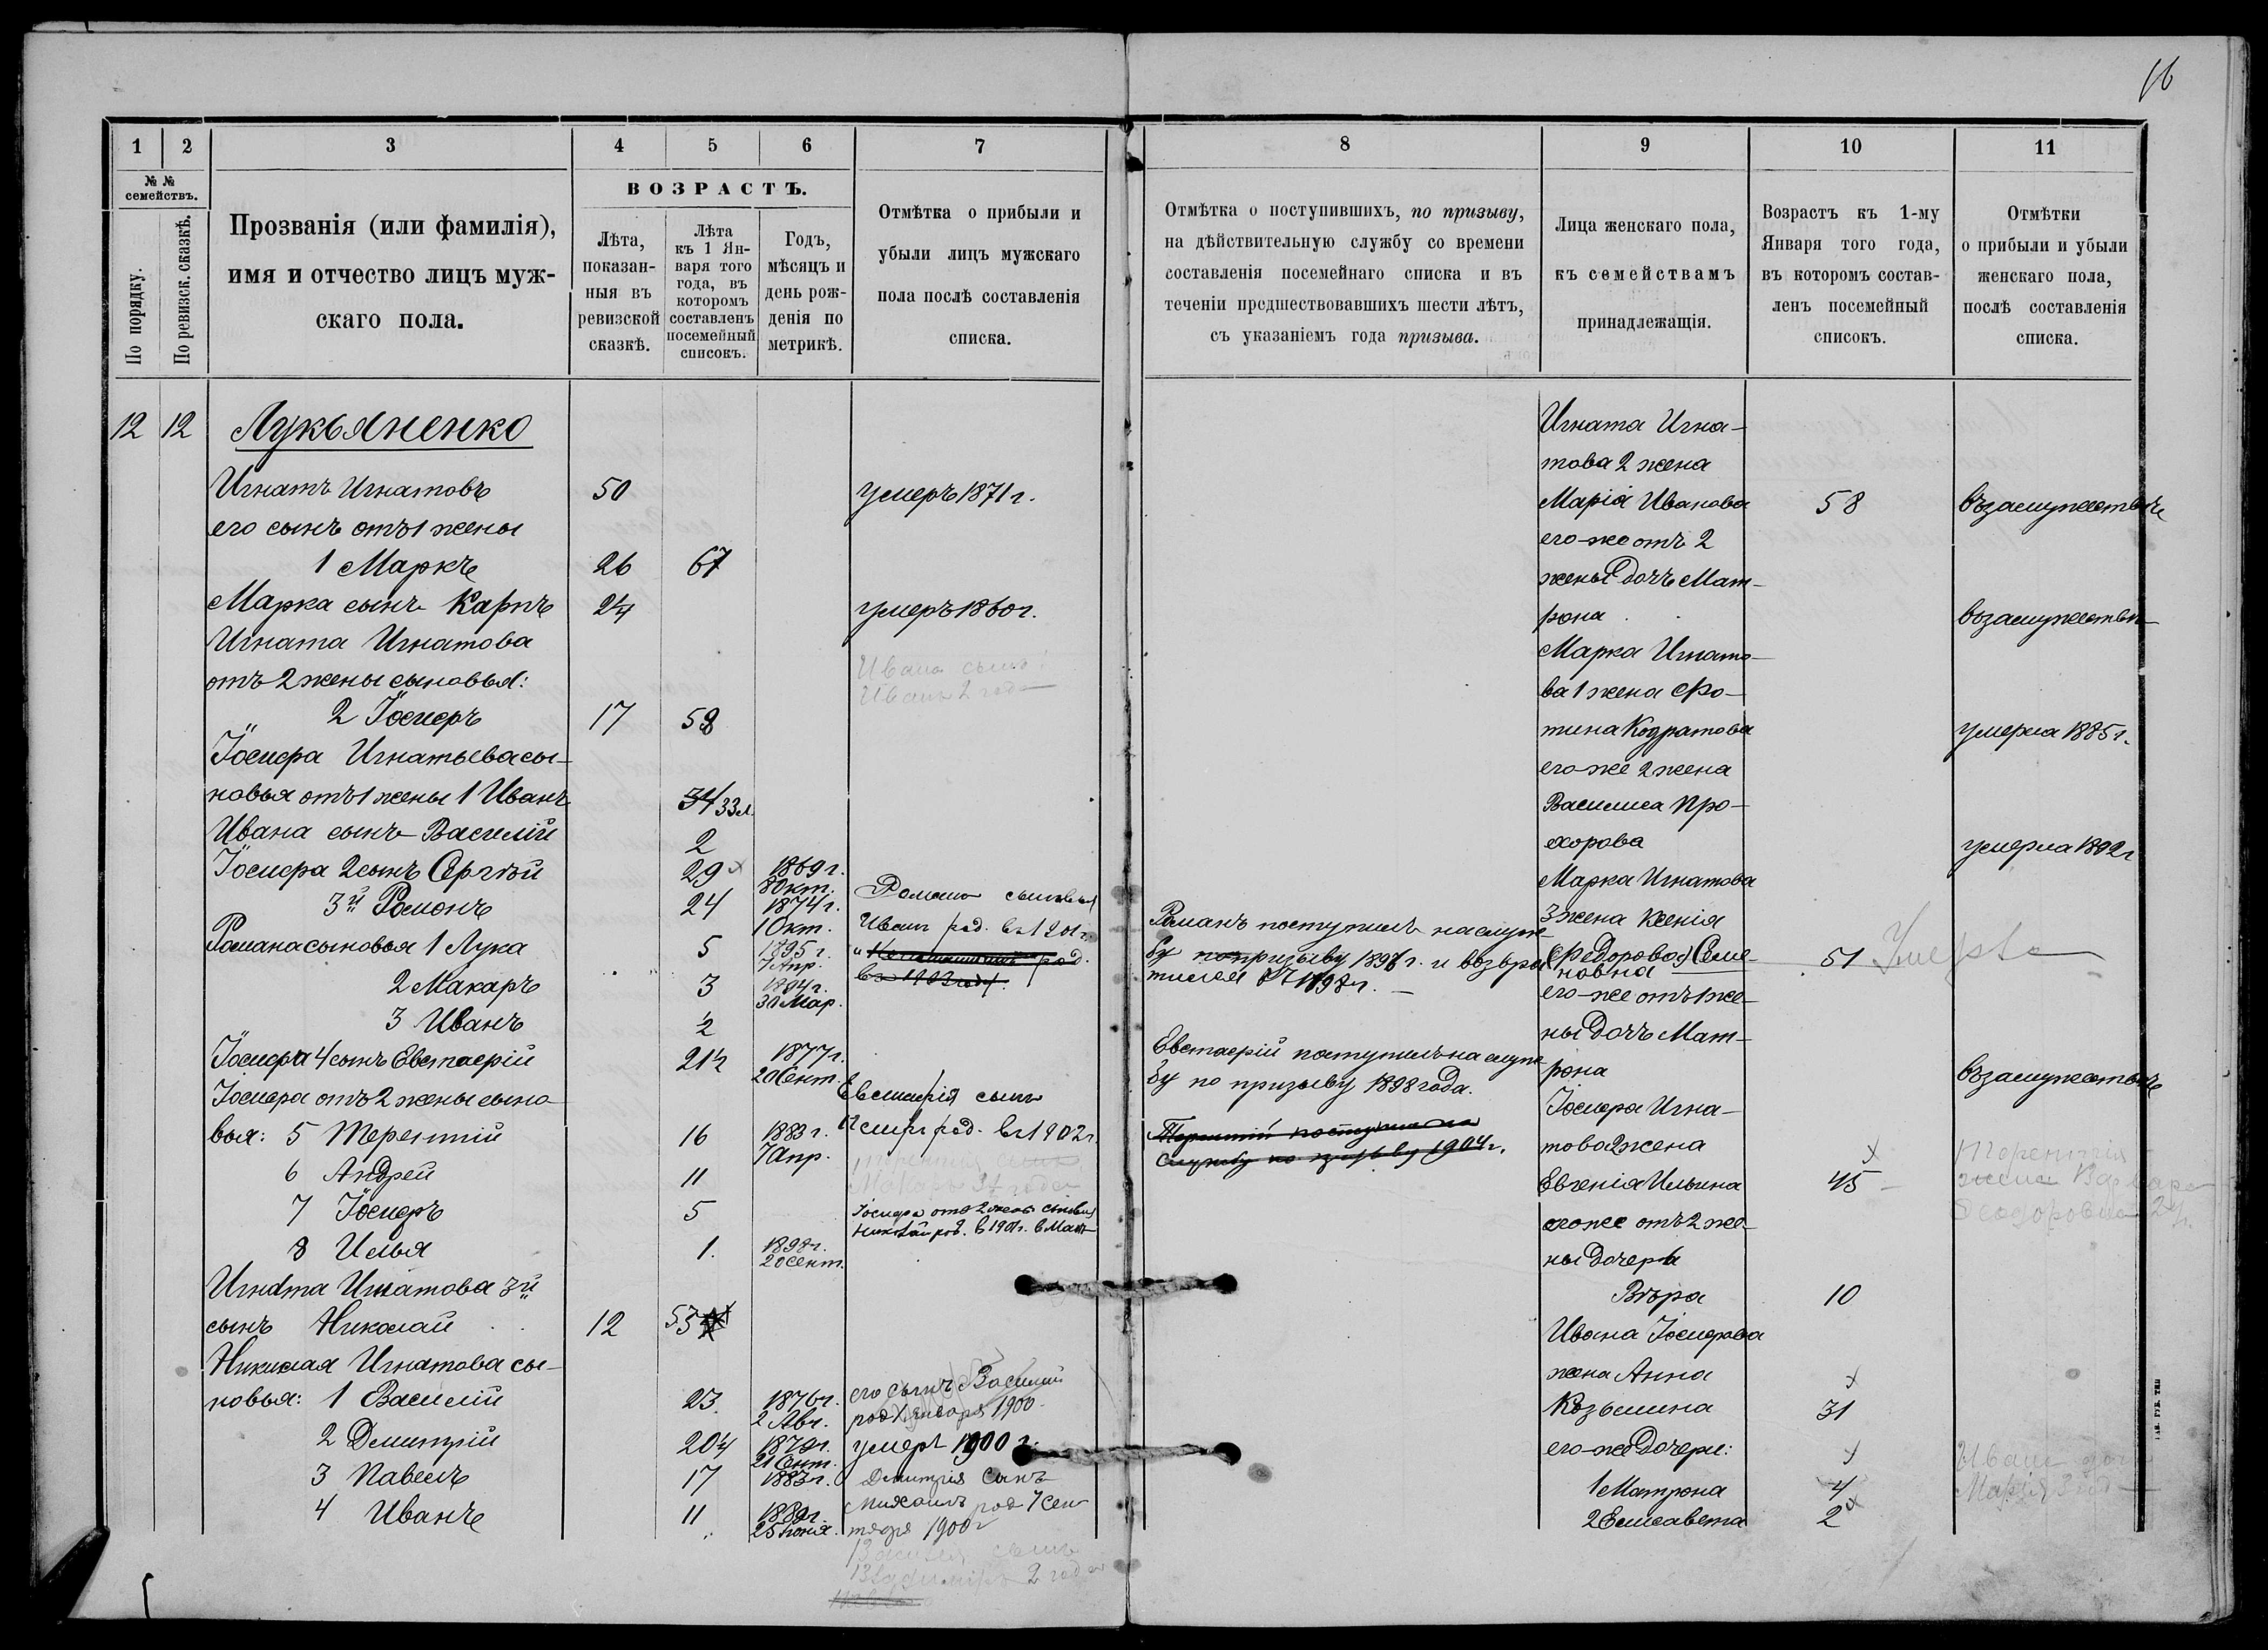 16
1
2
3
4
5
6
7
8
9
10
11
№ №
семействъ.
По порядку.
По ревизск. сказкѣ.
Прозванія (или фамилія),
имя и отчество лицъ муж-
скаго пола.
ВОЗРАСТЪ.
Лѣта,
показан-
ныя въ
ревизской
сказкѣ.
Лѣта
къ 1 Ян-
варя того
года, въ
которомъ
составленъ
посемейный
списокъ.
Годъ,
мѣсяцъ и
день рож-
денія по
метрикѣ.
Отмѣтка о прибыли и
убыли лицъ мужскаго
пола послѣ составленія
списка.
Отмѣтка о поступившихъ, по призыву,
на дѣйствительную службу со времени
составленія посемейнаго списка и въ
теченіи предшествовавшихъ шести лѣтъ,
съ указаніемъ года призыва.
Лица женскаго пола,
къ семействамъ
принадлежащія.
Возрастъ къ 1-му
Января того года,
въ которомъ состав-
ленъ посемейный
списокъ.
Отмѣтки
о прибыли и убыли
женскаго пола,
послѣ составленія
списка.
12 12 Лукьяненко
Игнатъ Игнатовъ 50 умеръ 1871 г.
его сынъ отъ 1 жены
1 Маркъ 26 67
Марка сынъ Карпъ 24 умеръ 1860 г.
Игната Игнатова
отъ 2 жены сыновья:
Ивана сынъ
Иванъ 2 года
2 Іосифъ 17 58
Іосифа Игнатьева сы-
новья отъ 1 жены 1 Иванъ 34 33 л.
Ивана сынъ Василій 2
Іосифа 2 сынъ Сергѣй 29 1869 г.
8 Окт.
3й Романъ 24 1874 г.
1 Окт.
Романа сыновья
Иванъ род. въ 1901 г.
и род.
въ 1903 году.
Романа сыновья 1 Лука 5 1895 г.
7 Апр.
2 Макаръ 3 1894 г.
30 Мар.
3 Иванъ ½
Іосифа 4 сынъ Евстафій 21½ 1877 г.
20 Сент.
Іосифа отъ 2 жены сыно-
вья: 5 Терентій 16 1883 г.
7 Апр.
Евстафія сынъ
род. въ 1902 г.
6 Андрей 11
Терентія сынъ
Макаръ года
7 Іосифъ 5
Іосифа отъ 2 жены сыновья
Николай род. въ 1901 г. в Мат
8 Илья 1. 1898 г.
20 Сент.
Игната Игнатова 3й
сынъ Николай 12 53
Николая Игнатова сы-
новья: 1 Василій 23 1876 г.
2 Авг.
его сынъ Василій
род. января 1900
2 Дмитрій 20¼ 1879 г. умеръ 1900 г.
21 Сент.
3 Павелъ 17 1883 г. Дмитрія сынъ
4 Иванъ 11 1889 г.
25 Іюня.
Михаилъ род 7 сен
тября 1900 г
Василія сынъ
Владиміръ 2 года
Романъ поступилъ на служ-
бу по призыву 1896 г. и возвра
тился въ 1898 г.
Евстафій поступилъ на служ-
бу по призыву 1898 года.
Терентій поступилъ на
службу по призыву 1904 г.
Игната Игна-
това 2 жена
Марія Иванова 58 въ замужествѣ
его-же отъ 2
жены дочь Мат-
рона въ замужествѣ
Марка Игнато-
ва 1 жена Фо-
тина Кодратова умерла 1885 г.
его-же 2 жена
Василиса Про-
хорова умерла 1892 г
Марка Игнатова
3 жена Ксенія
(Федорова) Семе- 51 Умерла
новна
его-же отъ 1 же-
ны дочь Мат-
рона въ замужествѣ
Іосифа Игна-
това 2 жена
Евгенія Ильина 45
Терентія
жена Варвара
Феодоровна 2
его же отъ 2 же-
ны дочери
Вѣра 10
Ивана Іосифова
жена Анна
Козьмина 31
его-же дочери:
1 Матрона 4
2 Елисавета 2
Ивана дочь
Марія 3 год